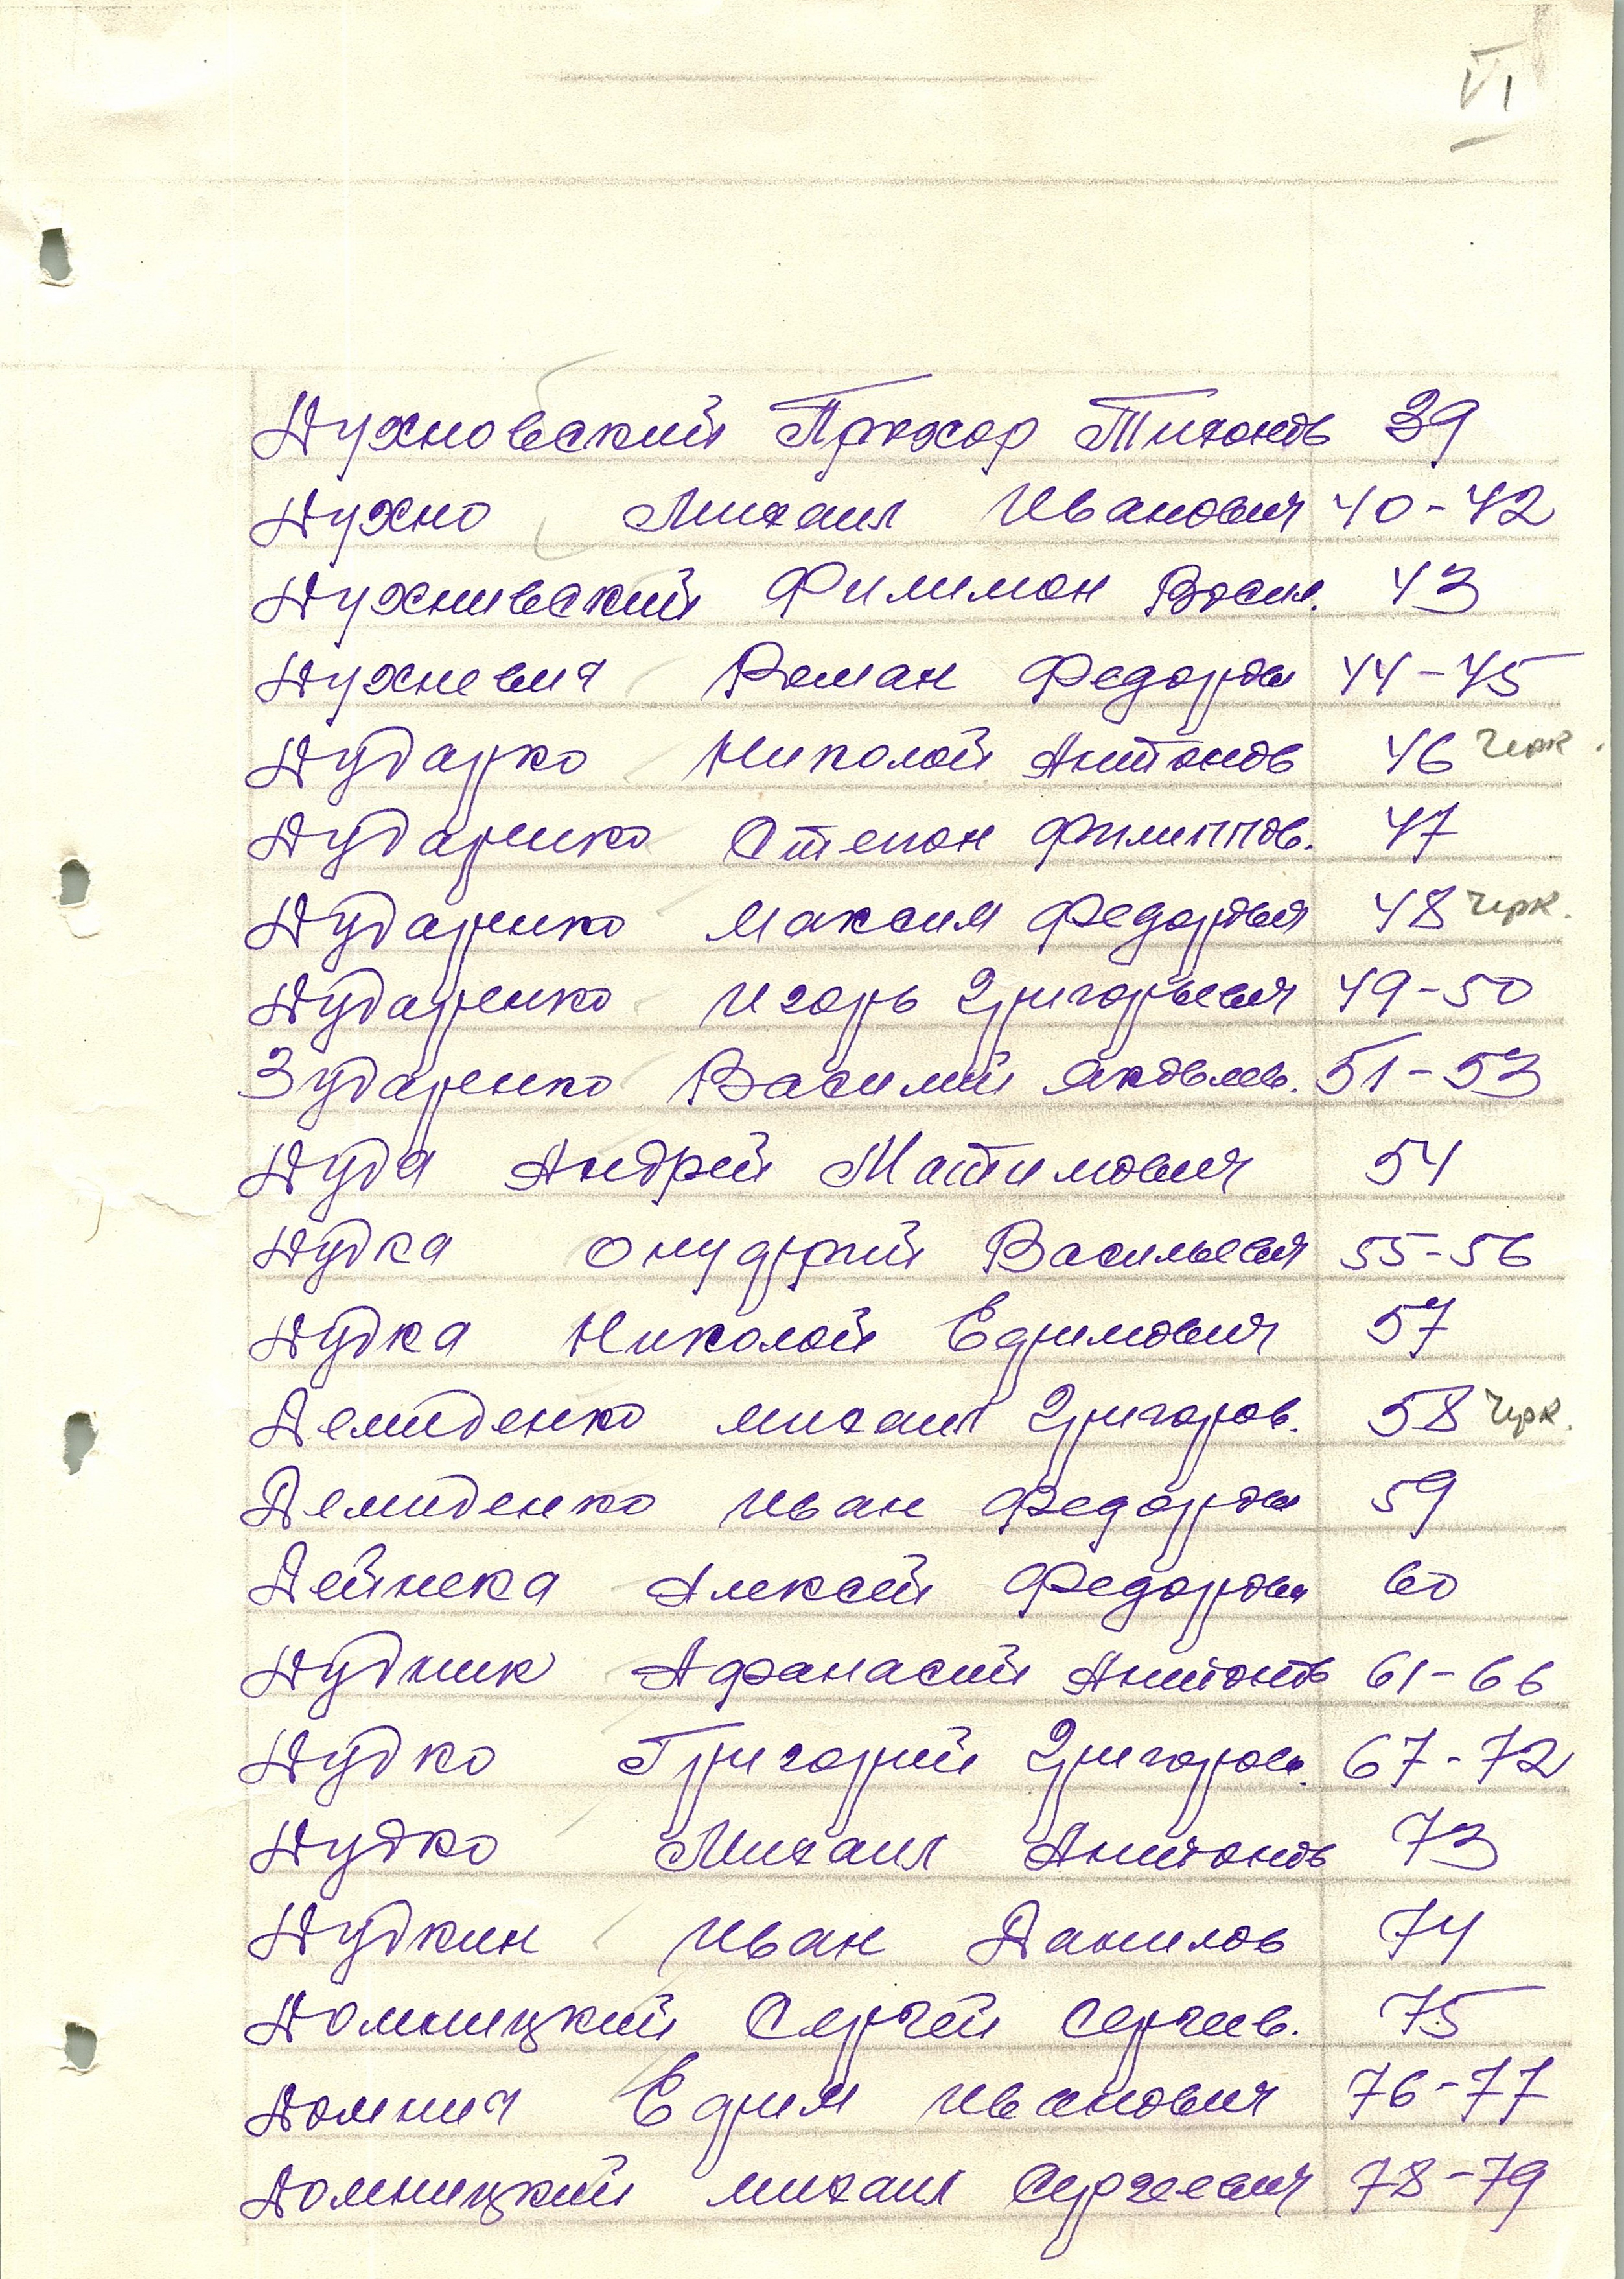 VI
Духновский Прохор Тихонов 39
Духно Михаил Иванович 40-42
Духнивский Филимон Васил. 43
Духневич Роман Федоров 44-45
Дударко Николай Антонов 46 Чрк.
Дударенко Степан Филиппов. 47
Дударенко Максим Федорович 48 Чрк.
Дударенко Игорь Григорьевич 49-50
Зударенко Василий Яковлев. 51-53
Дуда Андрей Мактимович 54
Дудка Онуфрий Васильевич 55-56
Дудка Николай Ефимович 57
Демиденко Михаил Григоров. 58 Чрк.
Демиденко Иван Федоров 59
Дейнека Алексей Федоров 60
Дудник Афанасий Антонов 61-66
Дудко Григорий Григоров. 67-72
Дудко Михаил Антонов 73
Дудкин Иван Данилов 74
Домницкий Сергей Сергеев. 75
Домнич Ефим Иванович 76-77
Домницкий Михаил Сергеевич 78-79